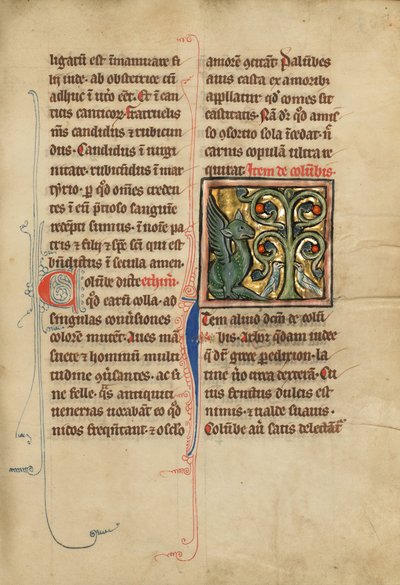 ligatū est ī manu ante fi
lij iude. ab obstetrice cū
adhuc ī utō cēt. Et ī can
ticis canticor. fratruelis
m̄s candidus & rubicun
dus. Candidus ī uirgi
nitate. rubicūdus ī mar
tyrio. p̄ qđ om̄es creden
tes ī eū p̄tioso sanguine
recepti sumus. ī noīe pa
tris & filij & sp̄c sc̄i qui est
bn̄dictus ī secula amen.
Colūbe dicte ethim̄.
qđ earū colla. ad
singulas conūsiones
colorē mutēt. Aues mā
suete & hominū multi
tudine 9ūsantes. ac si
ne felle. q̄s antiquiti
uenerias uocabāt eo qđ
nidos freq̄ntant. & osclo
amorē 9cipiāt. Palūbes
auis casta ex moribꝫ
appllatur qđ comes sit
castitatis. Nā dr̄ qđ amis
so 9sortio sola īcedat. n̄
carnis copulā ultra re
quirat. Item de colūbis.
Item aliud dc̄m de colū
bis. Arbor q̄dam īndee
q̄ dr̄ grece p̄edixion. la
tine ṽo circa dexterā. Cu
ius fructus dulcis est
nimis. & ualde suauis.
Colūbe aū satis delectāt͛